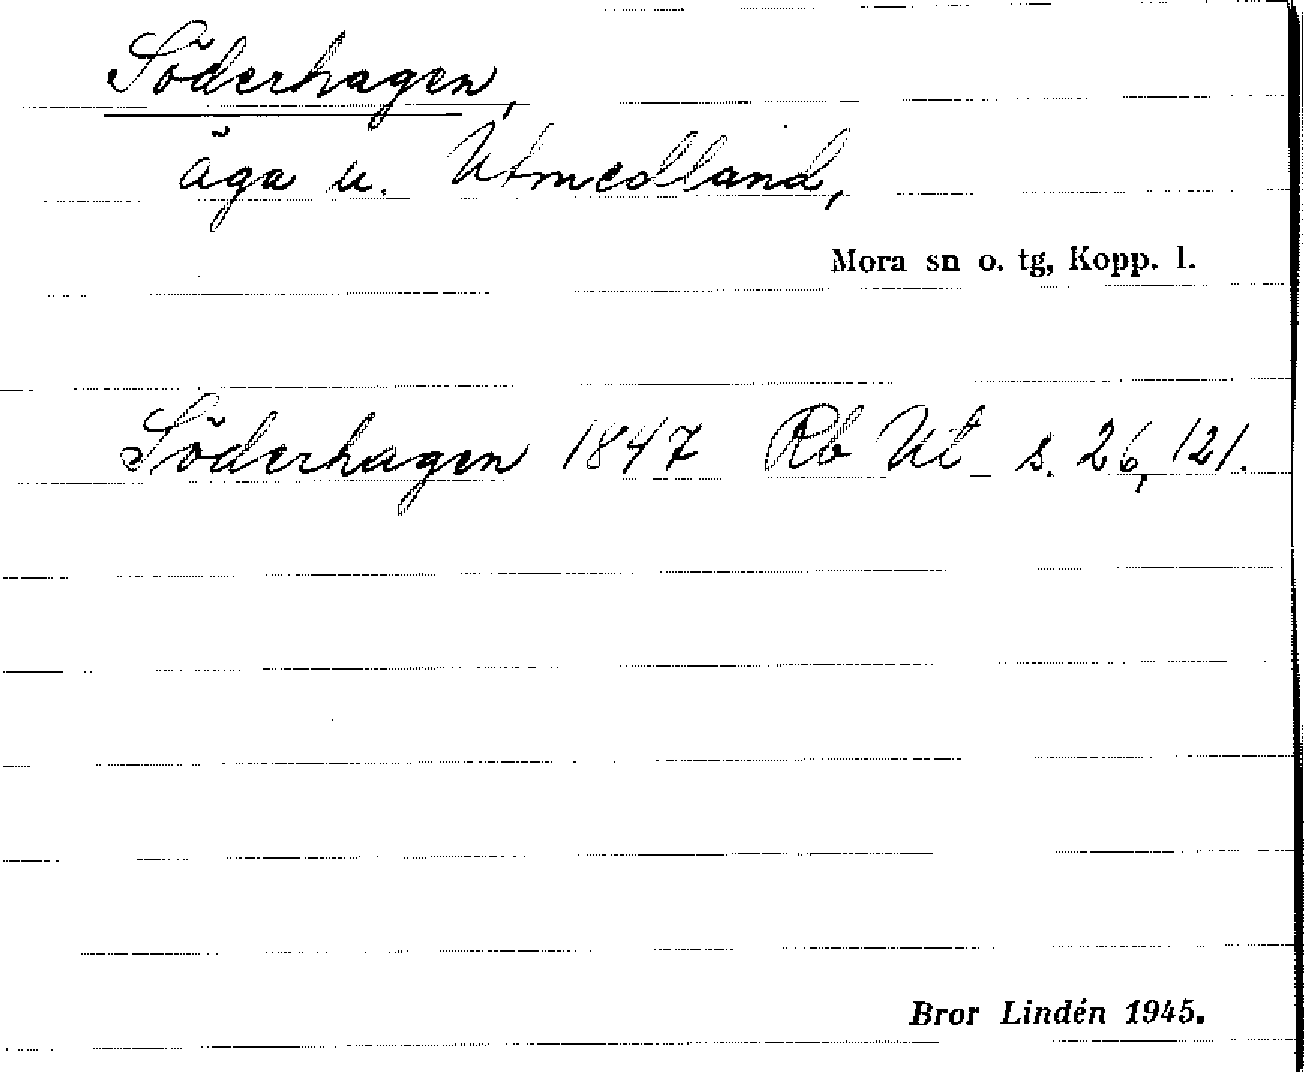 Söderhagen,
äga u. Utmedland,
Mora sn o. tg, Kopp. l.
Söderhagen 1847 Rb Ut_ s. 26, 121.
Bror Lindén 1945.